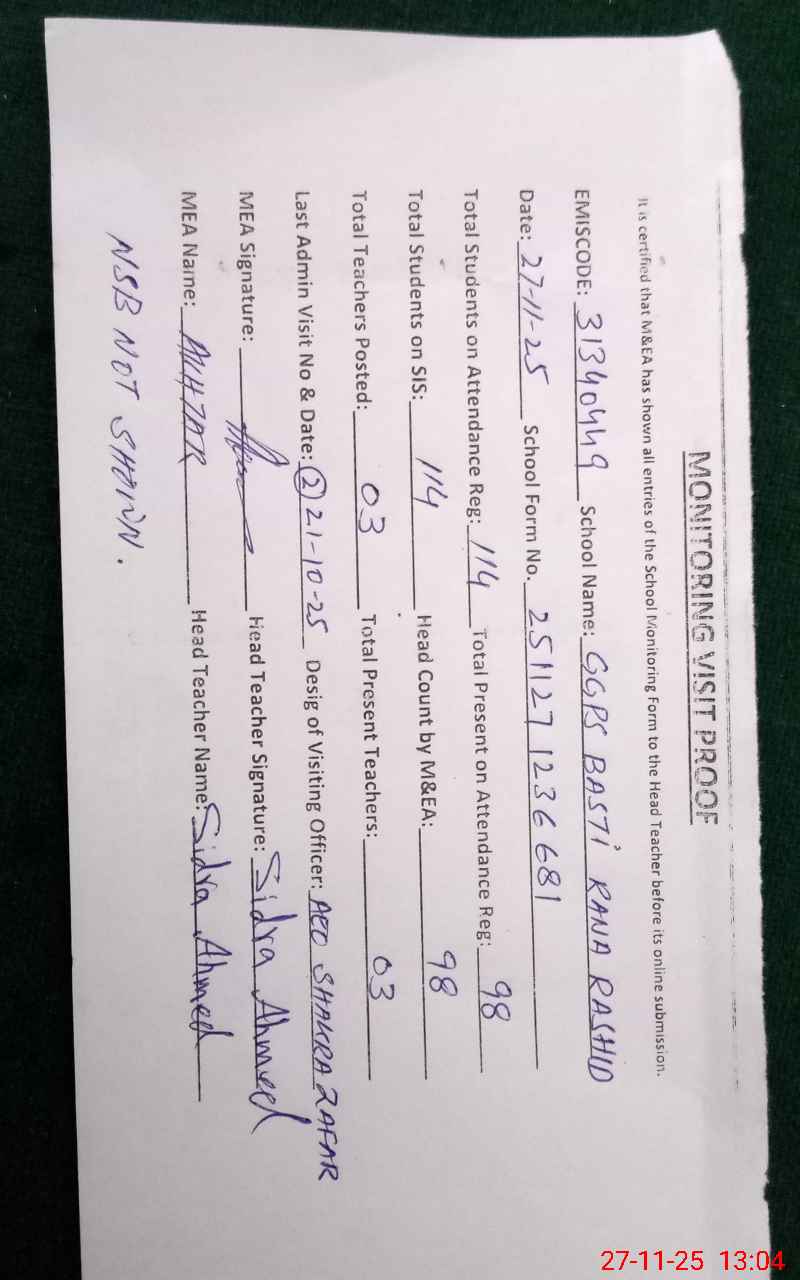 MONITORING VISIT PROOF
It is certified that M&EA has shown all entries of the School Monitoring Form to the Head Teacher before its online submission.
EMISCODE: 31340449 School Name: GGPS BASTI RANA RASHID
Date: 27-11-25 School Form No. 251127 1236681
Total Students on Attendance Reg: 114 Total Present on Attendance Reg: 98
Total Students on SIS: 114 Head Count by M&EA: 98
Total Teachers Posted: 03 Total Present Teachers: 03
Last Admin Visit No & Date: (2) 21-10-25 Desig of Visiting Officer: AEO SHAKRA ZAFAR
MEA Signature: Head Teacher Signature: Sidra Ahmed
MEA Name: AKHTAR Head Teacher Name: Sidra Ahmed
NSB NOT SHOWN.
27-11-25 13:04